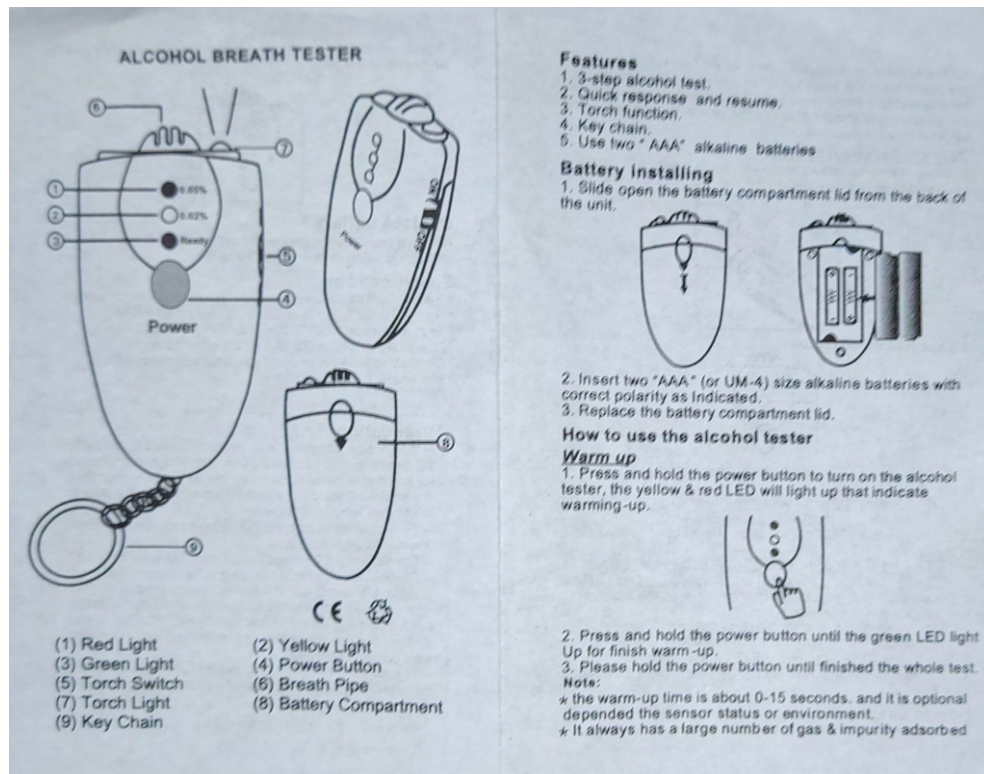 ALCOHOL BREATH TESTER
6
7
1
0.05%
2
0.02%
3
Ready
5
4
Power
ON
OFF
Power
8
9
CE
(1) Red Light
(2) Yellow Light
(3) Green Light
(4) Power Button
(5) Torch Switch
(6) Breath Pipe
(7) Torch Light
(8) Battery Compartment
(9) Key Chain
Features
1. 3-step alcohol test.
2. Quick response and resume.
3. Torch function.
4. Key chain.
5. Use two " AAA" alkaline batteries
Battery installing
1. Slide open the battery compartment lid from the back of
the unit.
2. Insert two "AAA" (or UM-4) size alkaline batteries with
correct polarity as Indicated.
3. Replace the battery compartment lid.
How to use the alcohol tester
Warm up
1. Press and hold the power button to turn on the alcohol
tester, the yellow & red LED will light up that indicate
warming-up.
2. Press and hold the power button until the green LED light
Up for finish warm-up.
3. Please hold the power button until finished the whole test.
Note:
* the warm-up time is about 0-15 seconds. and it is optional
depended the sensor status or environment.
* It always has a large number of gas & impurity adsorbed